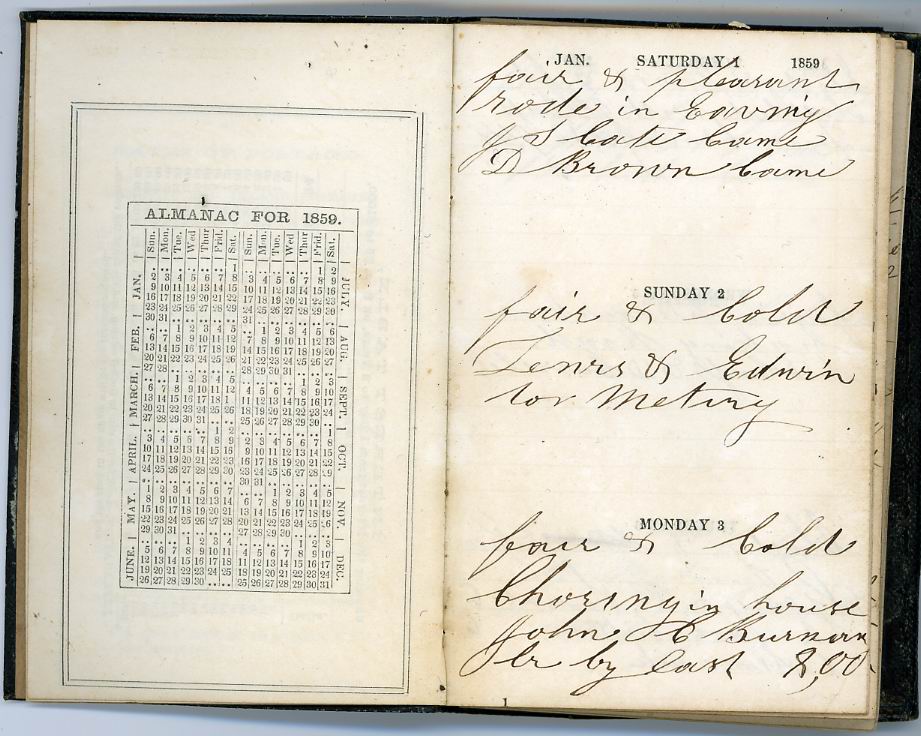 ALMANAC FOR 1859.
Sun. Mon. Tue. Wed Thur Frid. Sat. Sun. Mon. Tue. Wed Thur Frid. Sat.
JAN. JULY.
1 1 2
2 3 4 5 6 7 8 3 4 5 6 7 8 9
9 10 11 12 13 14 15 10 11 12 13 14 15 16
16 17 18 19 20 21 22 17 18 19 20 21 22 23
23 24 25 26 27 28 29 24 25 26 27 28 29 30
30 31 31
FEB. AUG.
1 2 3 4 5 1 2 3 4 5 6
6 7 8 9 10 11 12 7 8 9 10 11 12 13
13 14 15 16 17 18 19 14 15 16 17 18 19 20
20 21 22 23 24 25 26 21 22 23 24 25 26 27
27 28 28 29 30 31
MARCH. SEPT.
1 2 3 4 5 1 2 3
6 7 8 9 10 11 12 4 5 6 7 8 9 10
13 14 15 16 17 18 1 11 12 13 14 15 16 17
20 21 22 23 24 25 26 18 19 20 21 22 23 24
27 28 29 30 31 25 26 27 28 29 30
APRIL. OCT.
1 2 1
3 4 5 6 7 8 9 2 3 4 5 6 7 8
10 11 12 13 14 15 16 9 10 11 12 13 14 15
17 18 19 20 21 22 23 16 17 18 19 20 21 22
24 25 26 27 28 29 30 23 24 25 26 27 28 29
30 31
MAY. NOV.
1 2 3 4 5 6 7 1 2 3 4 5
8 9 10 11 12 13 14 6 7 8 9 10 11 12
15 16 17 18 19 20 21 13 14 15 16 17 18 19
22 23 24 25 26 27 28 20 21 22 23 24 25 26
29 30 31 27 28 29 30
JUNE. DEC.
1 2 3 4 1 2 3
5 6 7 8 9 10 11 4 5 6 7 8 9 10
12 13 14 15 16 17 18 11 12 13 14 15 16 17
19 20 21 22 23 24 25 18 19 20 21 22 23 24
26 27 28 29 30 25 26 27 28 29 30 31
JAN. SATURDAY 1 1859
fair & pleasant
rode in
J S Cate Came
D Brown Came
SUNDAY 2
fair & Cold
Lewis & Edwin
to Meting
MONDAY 3
fair & Cold
Choring in house
John C
Cr by Cash 8,00
1